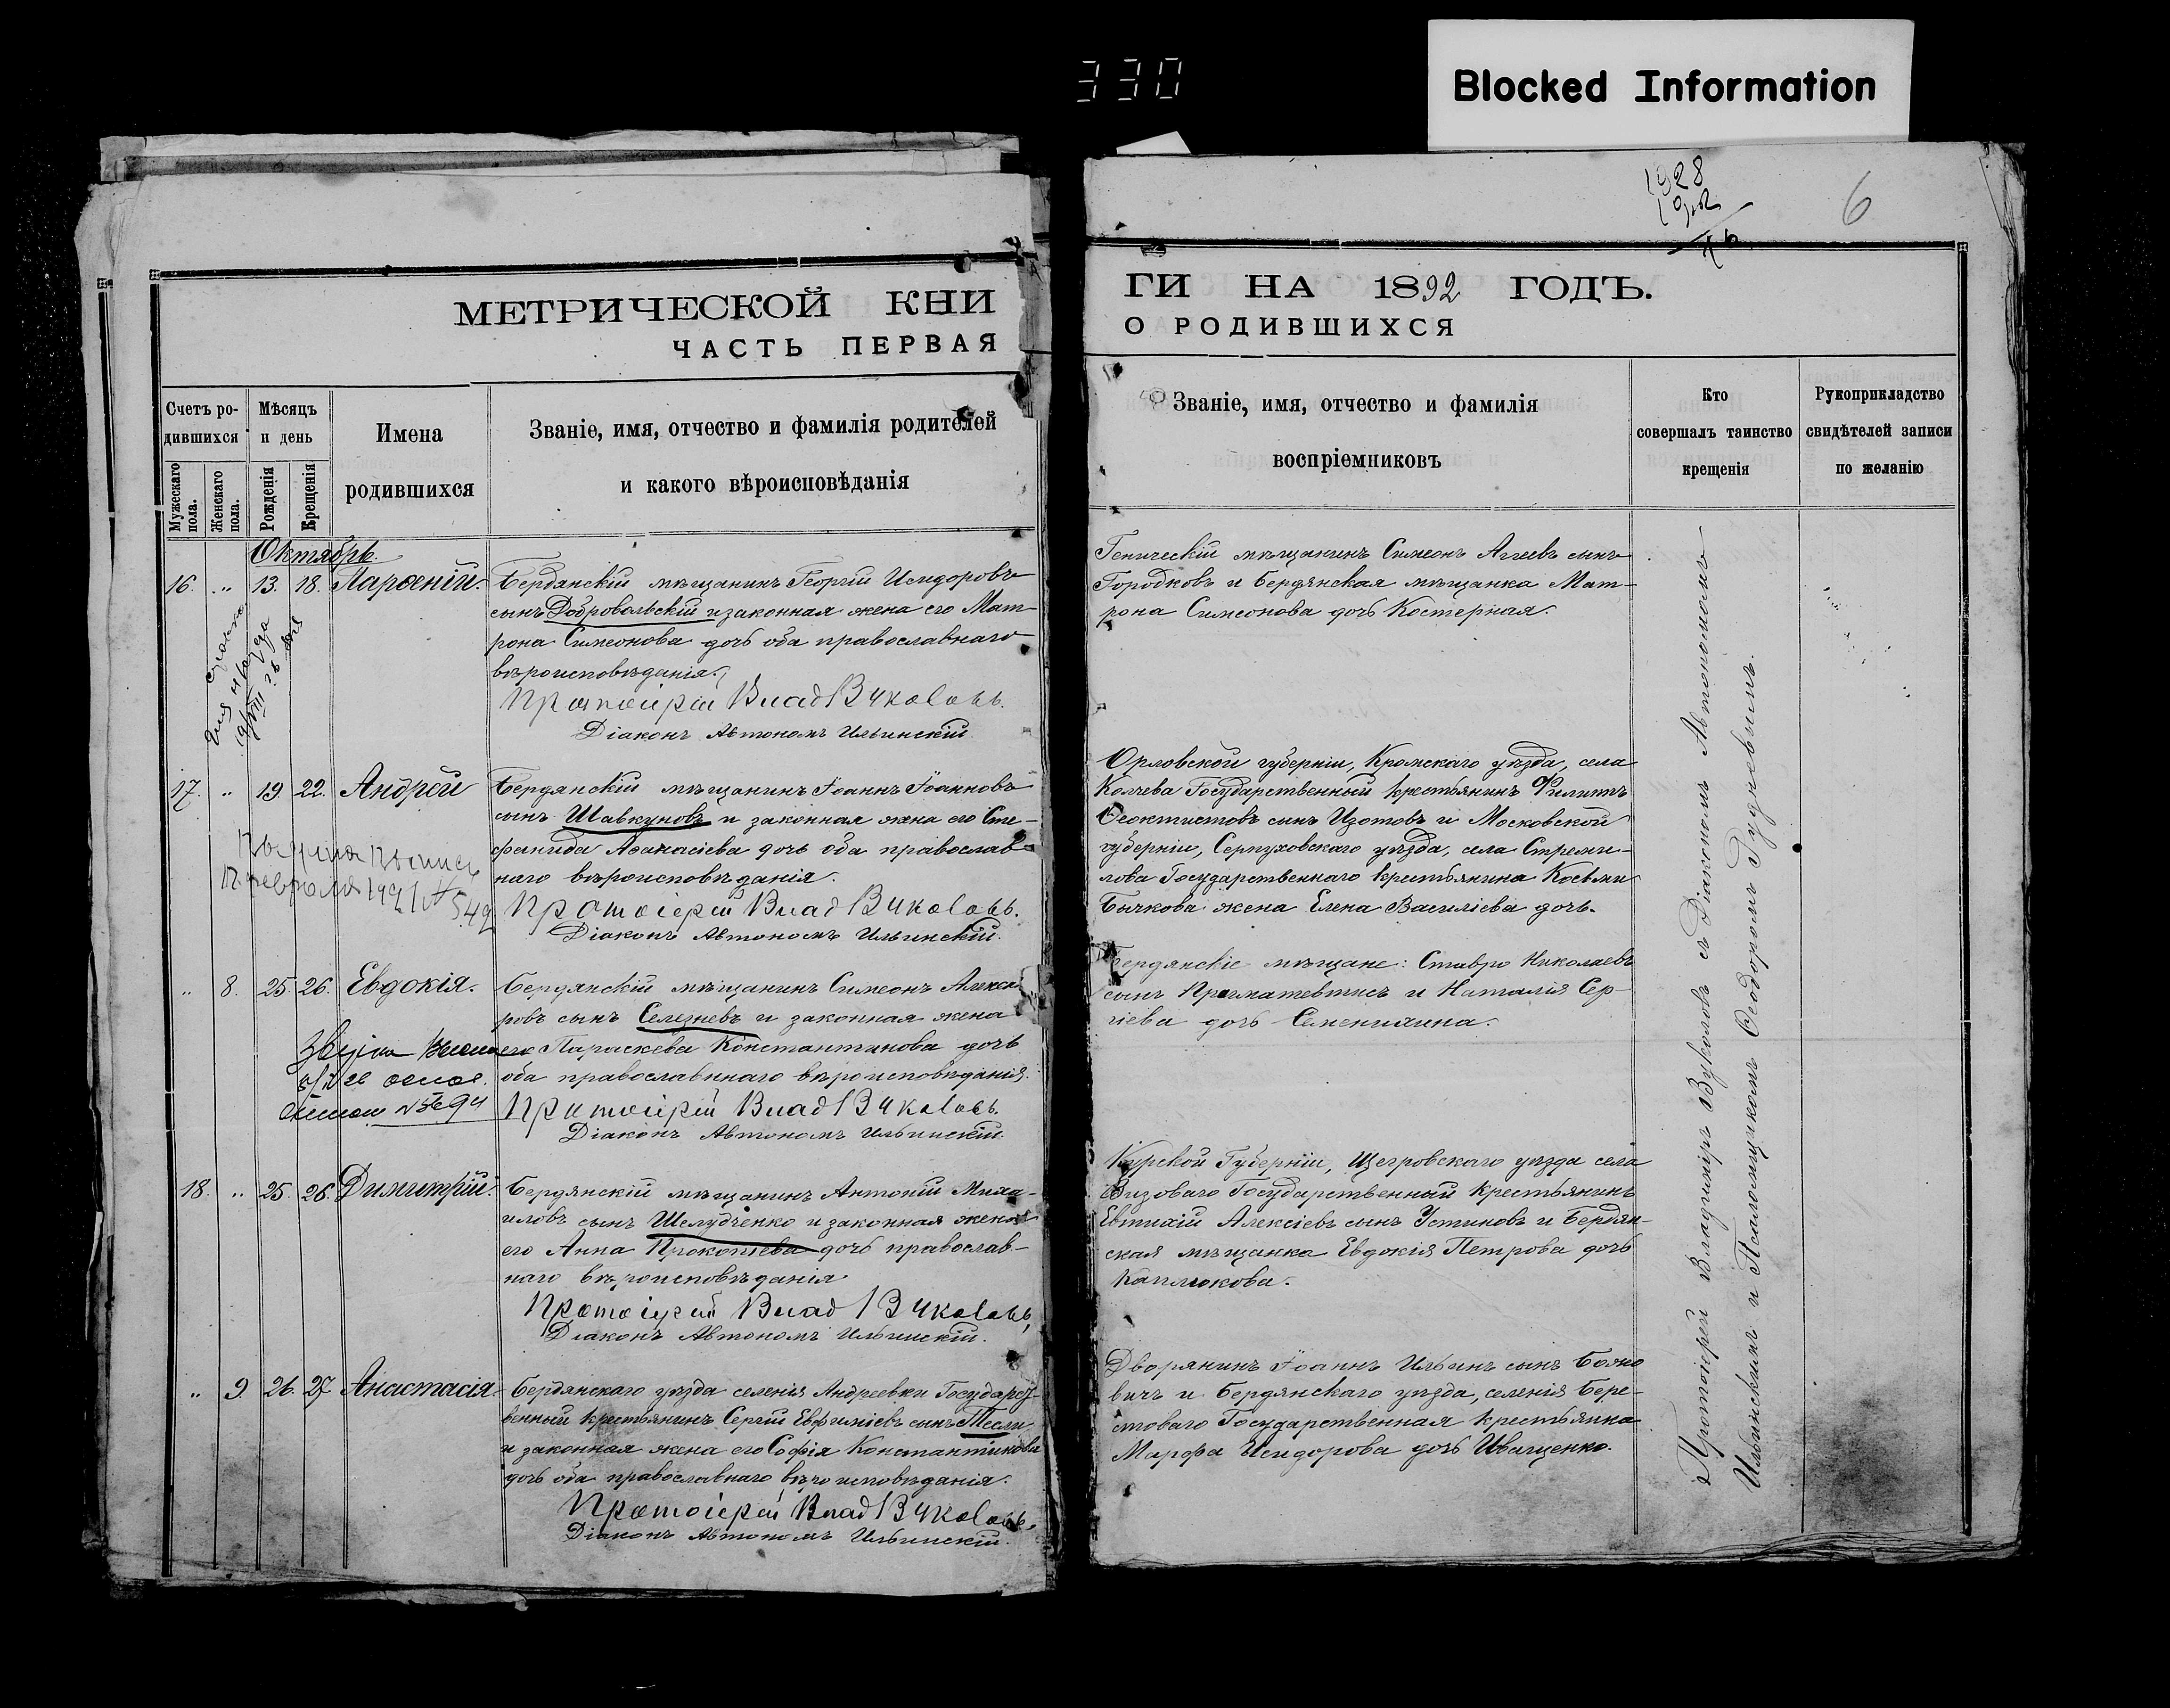 330
Blocked Information
1928
6
МЕТРИЧЕСКОЙ КНИ
ЧАСТЬ ПЕРВАЯ
Счетъ ро-
дившихся
Мѣсяцъ
и день
Имена
родившихся
Званіе, имя, отчество и фамилія родителей
и какого вѣроисповѣданія
Мужескаго
пола.
Женскаго
пола.
Рожденія
Крещенія
Октябрь.
16. „ 13. 18. Парѳеній.
Бердянскій мѣщанинъ Георгій Исидоровъ
сынъ Добровольскій и законная жена его Мат-
рона Симеонова дочь оба православнаго
вѣроисповѣданія.
Протоіерей Влад Вуколовъ.
Діаконъ Автономъ Ильинскій
17. „ 19 22. Андрей
Бердянскій мѣщанинъ Іоаннъ Іоанновъ
сынъ Шавкуновъ и законная жена его Сте-
фанида Аѳанасіева дочь оба православ-
наго вѣроисповѣданія.
Протоіерей Влад Вуколовъ.
Діаконъ Автономъ Ильинскій.
„ 8. 25. 26. Евдокія.
Бердянскій мѣщанинъ Симеонъ Алекса
ровъ сынъ Селезневъ и законная жена
его Параскева Константинова дочь
оба православннаго вѣроисповѣданія.
Протоіерей Влад Вуколовъ.
Діаконъ Автономъ Ильинскій.
18. „ 25. 26. Димитрій.
Бердянскій мѣщанинъ Антоній Миха-
иловъ сынъ Шелудченко и законная жена
его Анна Прокопіева дочь православ-
наго вѣроисповѣданія
Протоіерей Влад Вуколовъ,
Діаконъ Автономъ Ильинскій.
„ 9 26. 27 Анастасія.
Бердянскаго уѣзда селенія Андреевки Государст
венный крестьянинъ Сергій Евфиміевъ сынъ Тесля
и законная жена его Софія Константинова
дочь оба православнаго вѣроисповѣданія.
Протоіерей Влад Вуколовъ.
Діаконъ Автономъ Ильинскій.
ГИ НА 1892 ГОДЪ.
О РОДИВШИХСЯ
Званіе, имя, отчество и фамилія
воспріемниковъ
Кто
совершалъ таинство
крещенія
Рукоприкладство
свидѣтелей записи
по желанію
Геническій мѣщанинъ Симеонъ Аггеевъ сынъ
Городковъ и Бердянская мѣщанка Мат-
рона Симеонова дочь Костерная.
Орловской губерніи, Кромскаго уѣзда, села
Колчева Государственный крестьянинъ Филиппъ
Ѳеоктистовъ сынъ Изотовъ и Московской
губерніи, Серпуховскаго уѣзда, села Стреми-
лова Государственнаго крестьянина Косьмы
Бычкова жена Елена Василіева дочь.
Бердянскіе мѣщане: Ставро Николаевъ
сынъ Прагматевтисъ и Наталія Сер-
гіева дочь
Курской Губерніи, Щегровскаго уѣзда села
Визоваго Государственный крестьянинъ
Евтихій Алексіевъ сынъ Устиновъ и Бердян-
ская мѣщанка Евдокія Петрова дочь
Каплюкова.
Дворянинъ Іоаннъ Ильинъ сынъ Божо
вичъ и Бердянскаго уѣзда, селенія Бере-
стоваго Государственная крестьянка
Марфа Исидорова дочь Иващенко.
Протоіерей Владиміръ Вуколовъ съ Діакономъ Автономомъ
Ильинскимъ и Псаломщикомъ Ѳеодоромъ Рудневымъ.